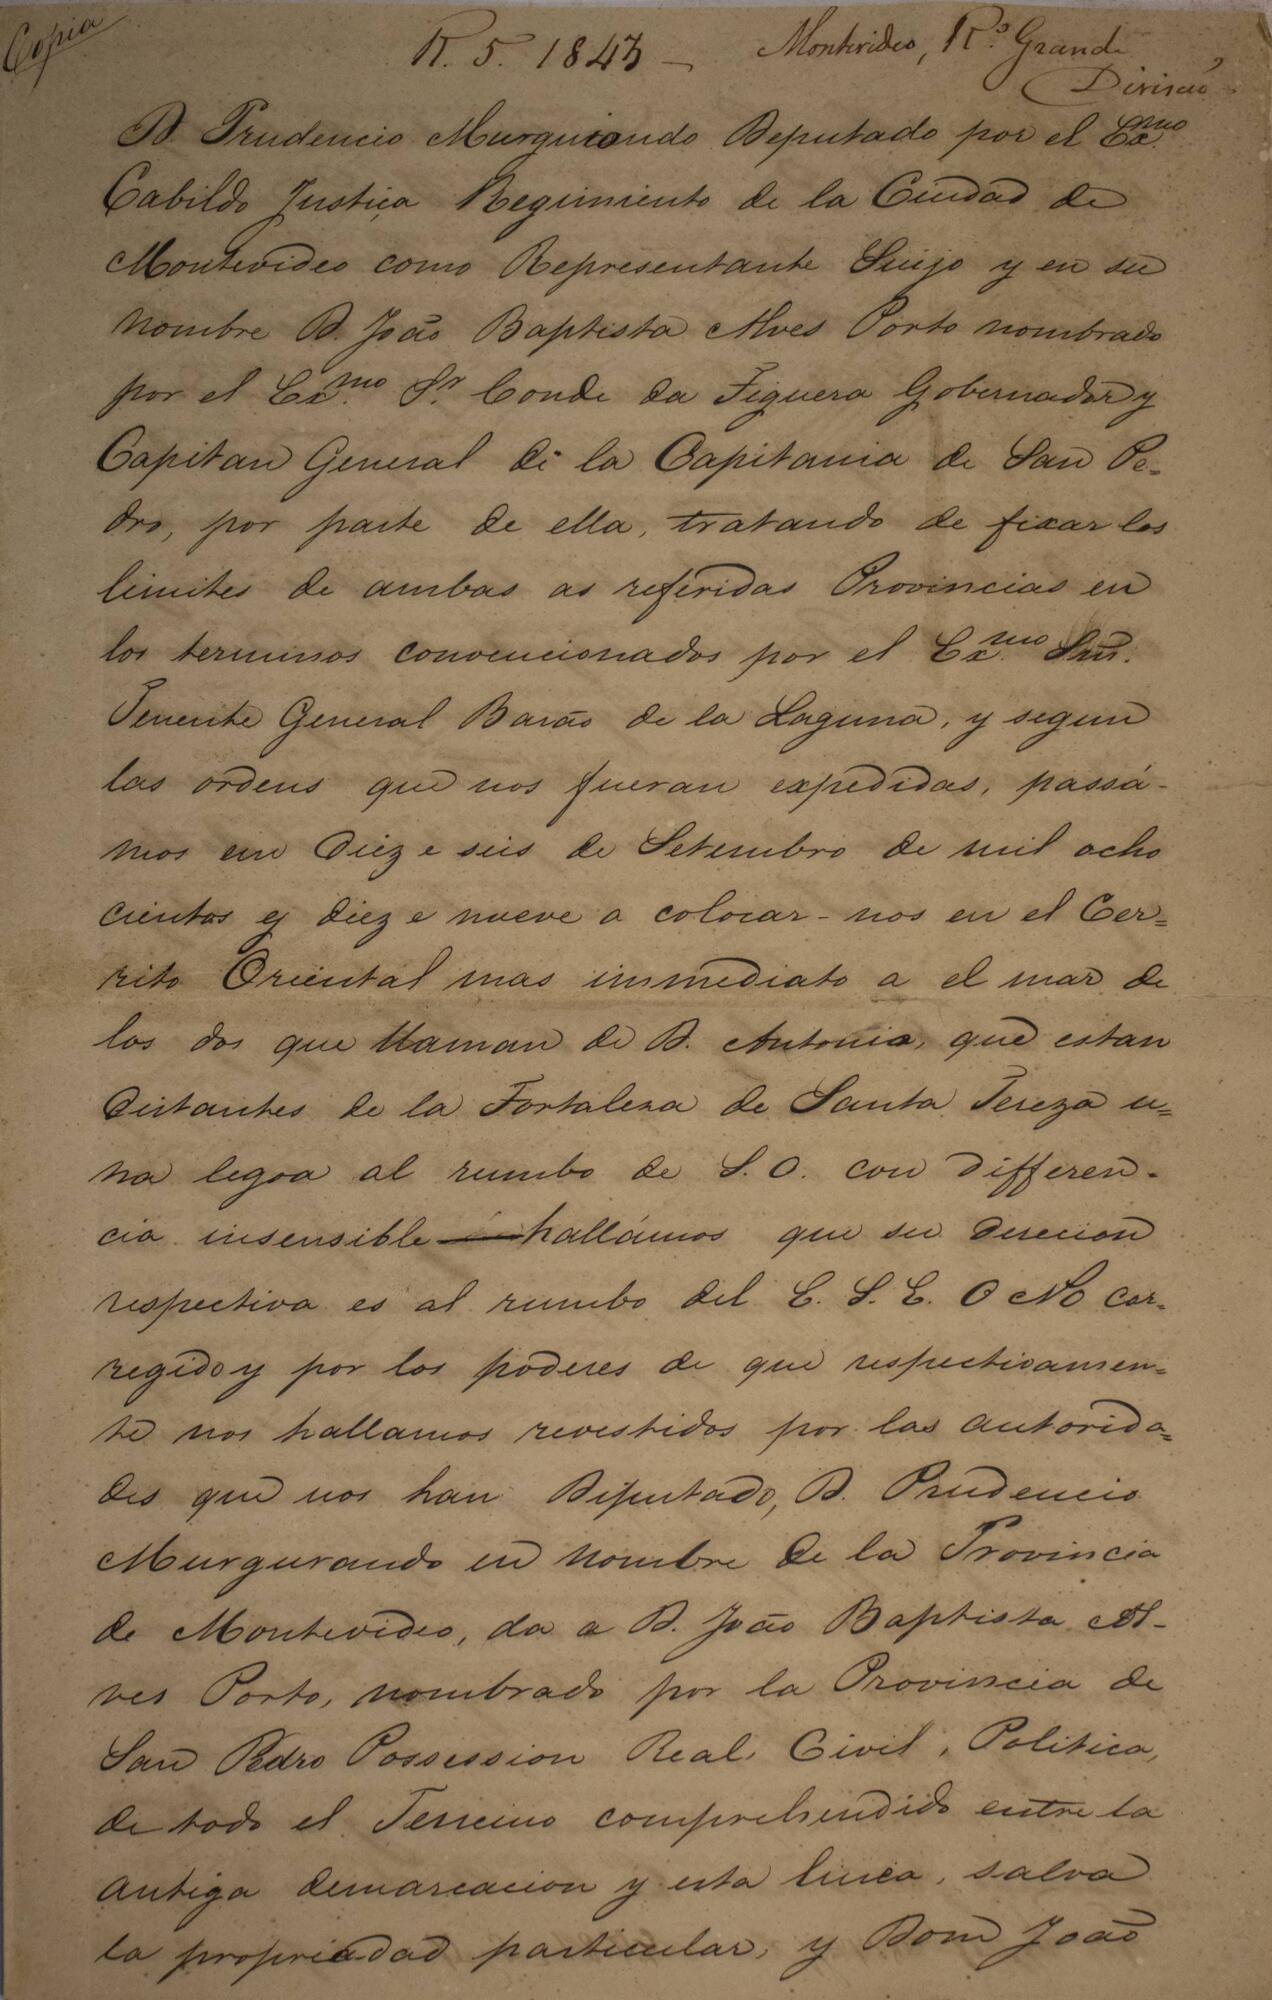 Copia
R. 5. 1843 — Montevideo, R.º Grande
Divisão
D. Prudencio Murguiondo Deputado por el Ex.mo
Cabildo Justiça Regimiento de la Ciudad de
Montevideo como Representante Suijo y en su
nombre D. João Baptista Alves Porto nombrado
por el Ex.mo Sr. Conde da Figuera Gobernador y
Capitan General de la Capitania de San Pe-
dro, por parte de ella, tratando de fixar los
limites de ambas as referidas Provincias en
los terminos convencionados por el Ex.mo Snr.
Tenente General Barão de la Laguna, y segun
las ordens que nos fueran expedidas, passá-
mos en Diez e seis de Setembro de mil ocho
cientos y diez e nueve a colocar-nos en el Cer=
rito Oriental mas immediato a el mar de
los dos que llaman de D. Antonia, que estan
Distantes de la Fortaleza de Santa Tereza u=
na legoa al rumbo de S. O. con differen-
cia insensible — hallámos que su direcion
respectiva es al rumbo del E. S. E. O NO cor-
regido y por los poderes de que respectivamen=
te nos hallamos revestidos por las autorida=
des que nos han Diputado, D. Prudencio
Murgurando en nombre de la Provincia
de Montevideo, da a D. João Baptista Al-
ves Porto, nombrado por la Provincia de
San Pedro Possession Real, Civil, Politica,
de todo el Terreno comprehendido entre la
antiga demarcacion y esta linea, salva
la propriedad particular, y Dom João